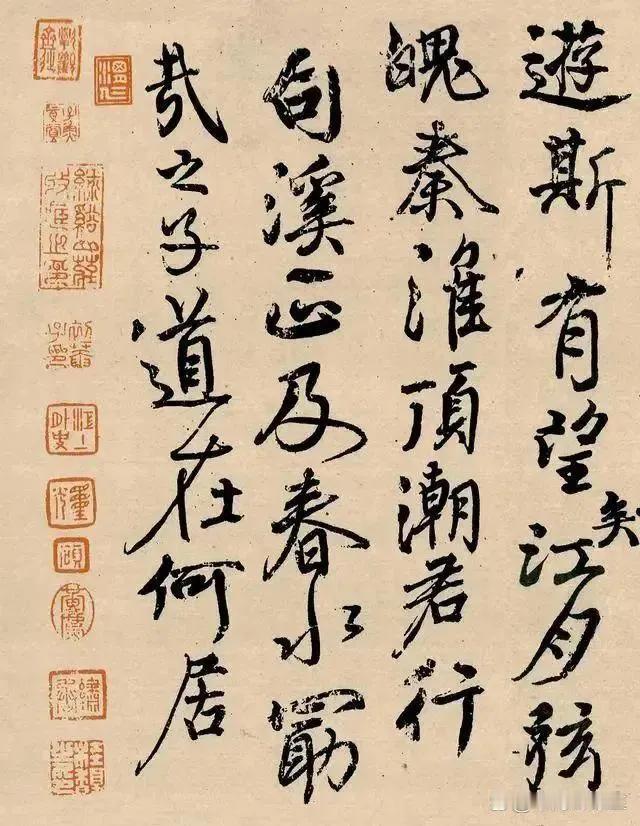 遊斯有望矣江月弦
魄秦淮頂潮君行
句溪正及春水勖
哉之子道在何居